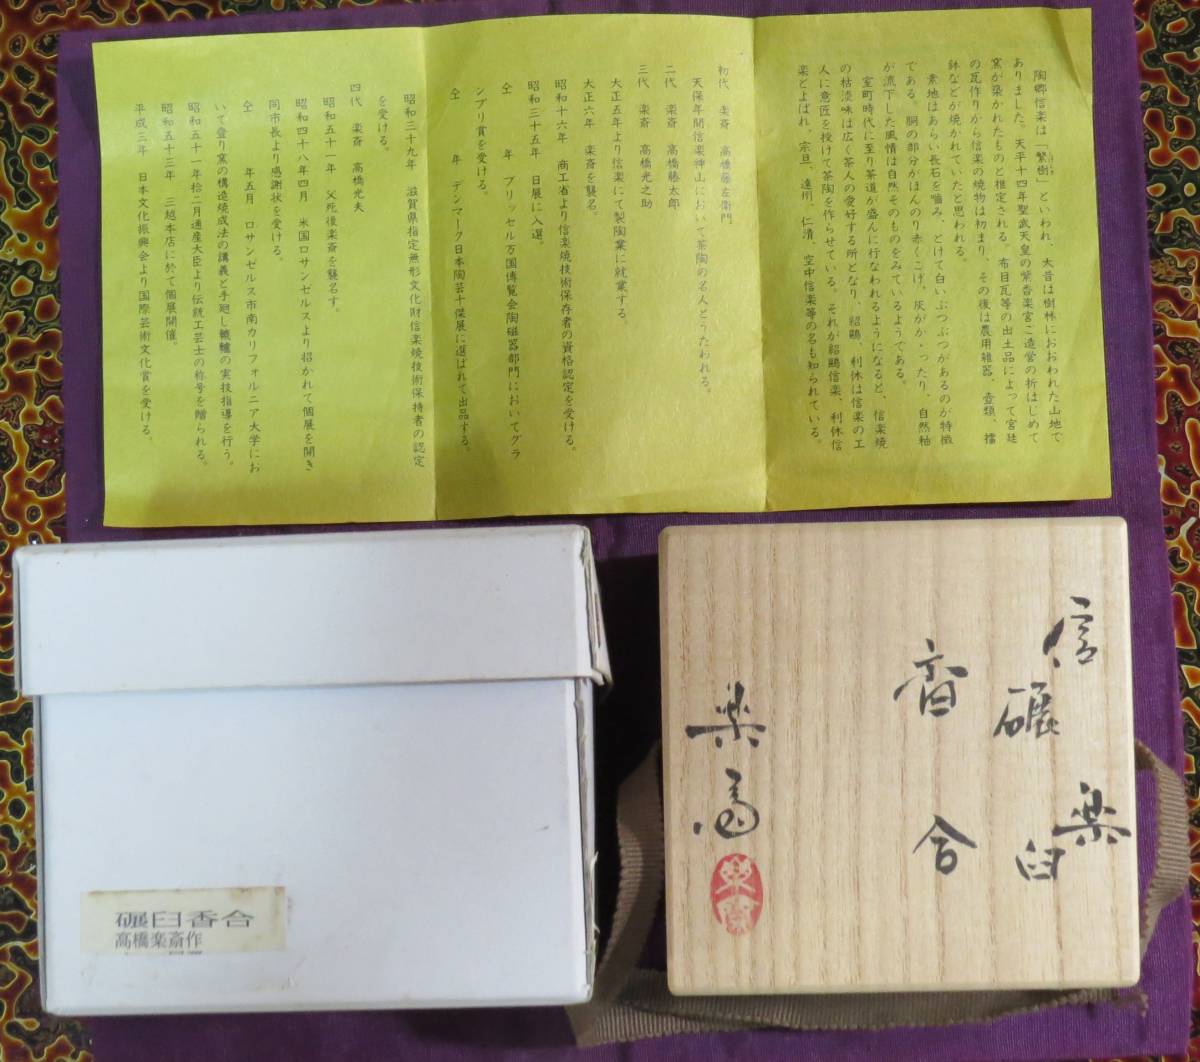 陶郷信楽は「繁樹」といわれ、大昔は樹林におおわれた山地で
ありました。天平十四年聖武天皇の紫香楽宮ご造営の折はじめて
窯が築かれたものと推定される。布目瓦等の出土品によって宮廷
の瓦作りから信楽の焼物は初まり、その後は農用雑器、壺類、擂
鉢などが焼かれていたと思われる。
素地はあらい長石を噛み、とけて白いぶつぶつがあるのが特徴
である。胴の部分がほんのり赤くこげ、灰がかゝったり、自然釉
が流下した風情は自然そのものをみているようである。
室町時代に至り茶道が盛んに行なわれるようになると、信楽焼
の枯淡味は広く茶人の愛好する所となり、紹鷗、利休は信楽の工
人に意匠を授けて茶陶を作らせている。それが紹鷗信楽、利休信
楽とよばれ、宗旦、遠州、仁清、空中信楽等の名も知られている。
初代 楽斎 高橋藤左衛門
天保年間信楽神山において茶陶の名人とうたわれる。
二代 楽斎 高橋藤太郎
三代 楽斎 高橋光之助
大正五年より信楽にて製陶業に就業する。
大正六年 楽斎を襲名。
昭和十六年 商工省より信楽焼技術保存者の資格認定を受ける。
昭和三十五年 日展に入選。
仝 年 ブリッセル万国博覧会陶磁器部門においてグラ
ンプリ賞を受ける。
仝 年 デンマーク日本陶芸十傑展に選ばれて出品する。
昭和三十九年 滋賀県指定無形文化財信楽焼技術保持者の認定
を受ける。
四代 楽斎 高橋光夫
昭和五十一年 父死後楽斎を襲名す。
昭和四十八年四月 米国ロサンゼルスより招かれて個展を開き
同市長より感謝状を受ける。
仝 年五月 ロサンゼルス市南カリフォルニア大学にお
いて登り窯の構造焼成法の講義と手廻し轆轤の実技指導を行う。
昭和五十一年拾二月通産大臣より伝統工芸士の称号を贈られる。
昭和五十三年 三越本店に於て個展開催。
平成三年 日本文化振興会より国際芸術文化賞を受ける。
碾臼香合
高橋楽斎作
信楽
碾臼
香合
楽斎
楽斎